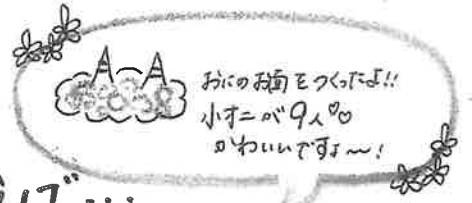 おにのお面をつくったよ!!
小オニが9人♡♡
かわいいですよ〜!